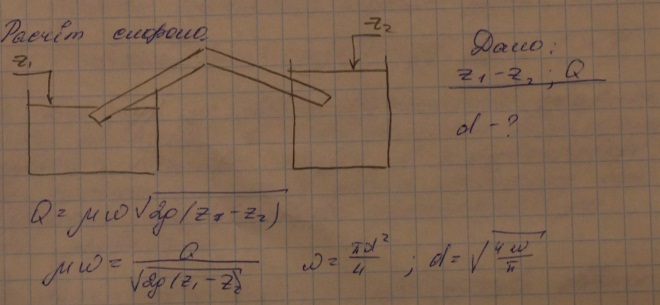 Расчёт сифона.
z₁
z₂
Дано:
z₁ - z₂ ; Q
d - ?
Q = μω√2g(z₁ - z₂)
μω = Q / √2g(z₁ - z₂)
ω = πd² / 4 ; d = √4ω / π